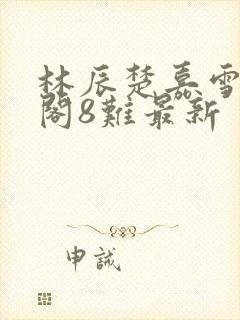 林辰楚嘉雪
閣8難最新
申誠